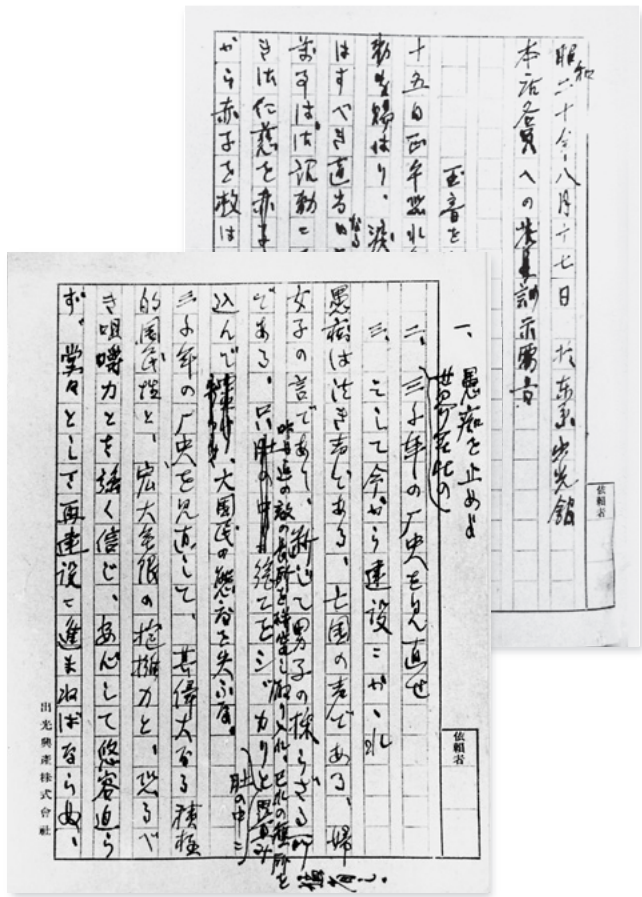 昭和二十年八月十七日 於東京出光館
本店各員への訓示要旨
玉音を
十五日正午恐れ
賜はり、涙
はすべき適当なる
き は仁慈を赤子
から赤子を救は
依頼者
一、愚痴を止めよ
世界無比の
二、三千年の厂史を見直せ
三、そして今から建設にかゝれ
愚痴は泣き声である、亡国の声である、婦
女子の言であり、断じて男子の採らざる所
昨日迄の敵の長所を研究し取り入れ、己れの短所を猛省し、
である、只総てをシッカリと呑み
肚の中に
込んで大国民の態度を失ふな。
三千年の厂史を見直して、其偉大なる積極
的国民性と、宏大無限の抱擁力と、恐るべ
き咀嚼力とを強く信じ、安心して悠容迫ら
ず、堂々として再建設に進まねばならぬ、
依頼者
出光興産株式會社